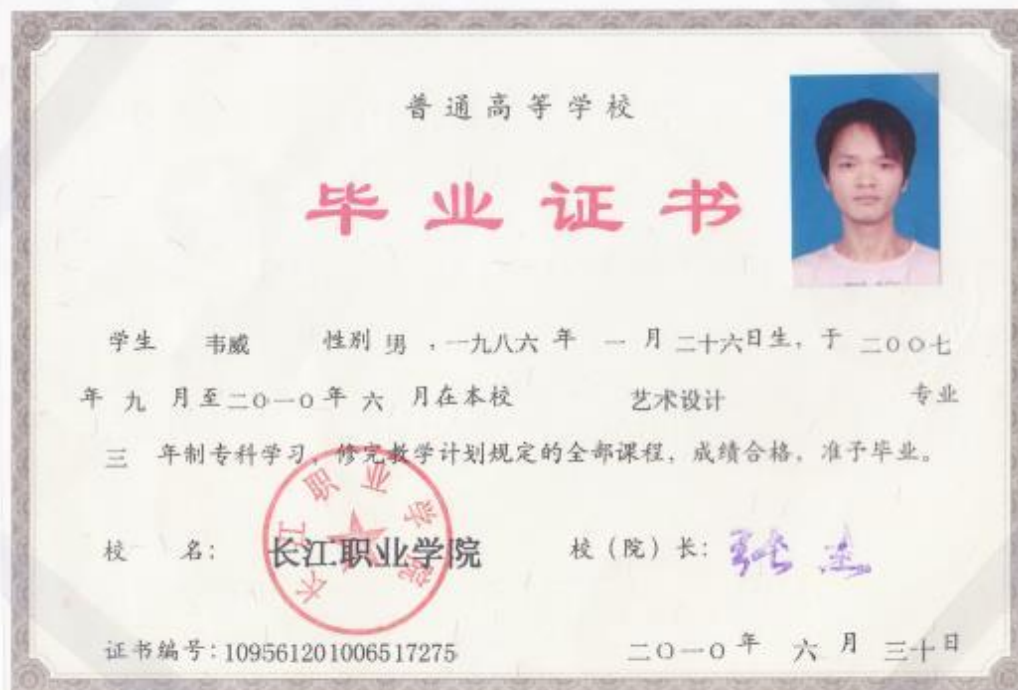 普通高等学校
毕业证书
学生 韦威 性别 男 ，一九八六 年 一 月 二十六日生，于 二〇〇七
年 九 月至二〇一〇年 六 月在本校 艺术设计 专业
三 年制专科学习，修完教学计划规定的全部课程，成绩合格，准予毕业。
长江职业学院
校 名： 长江职业学院 校（院）长：张杰
证书编号：109561201006517275 二〇一〇年 六 月 三十日